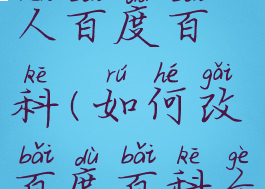 人百度百
kē rú hé gǎi
科(如何改
bǎi dù bǎi kē gè
百度百科个